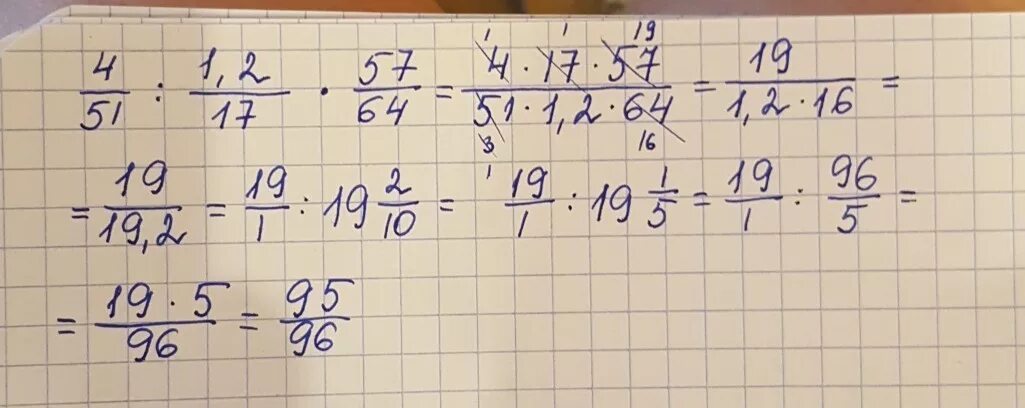 4/51 : 1,2/17 · 57/64 = 4 · 17 · 57/51 · 1,2 · 64 = 19/1,2 · 16 =
= 19/19,2 = 19/1 : 19 2/10 = 19/1 : 19 1/5 = 19/1 : 96/5 =
= 19 · 5/96 = 95/96